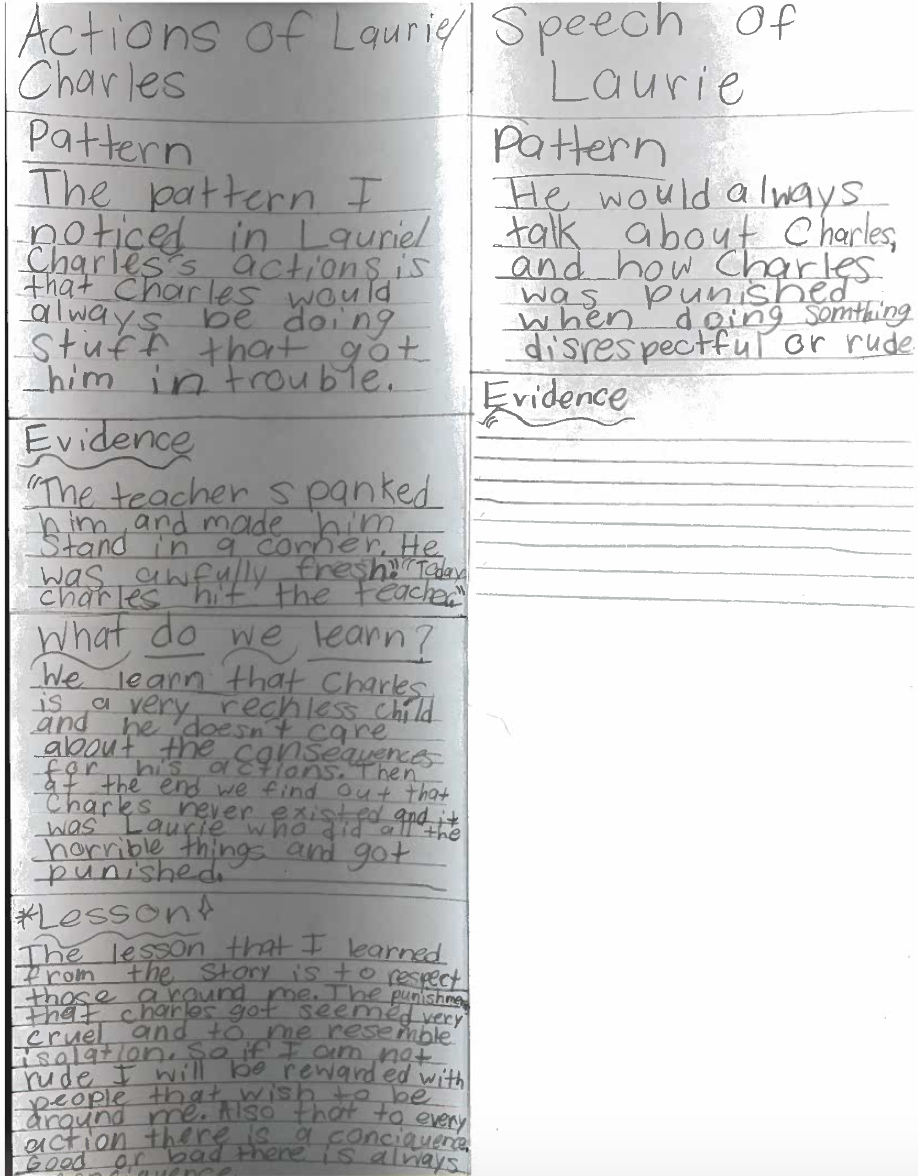 Actions of Laurie/
Charles
Pattern
The pattern I
noticed in Laurie/
Charles's actions is
that Charles would
always be doing
stuff that got
him in trouble.
Evidence
"The teacher spanked
him and made him
Stand in a corner. He
was awfully fresh." "Today
charles hit the teacher."
What do we learn?
We learn that Charles
is a very rechless child
and he doesn't care
about the consequences
for his actions. Then
at the end we find out that
Charles never existed and it
was Laurie who did all the
horrible things and got
punished.
*Lesson
The lesson that I learned
from the story is to respect
those around me. The punishmen
that charles got seemed very
cruel and to me resemble
isolation. So if I am not
rude I will be rewarded with
people that wish to be
around me. Also that to every
action there is a conciquence.
Good or bad there is always
Speech of
Laurie
Pattern
He would always
talk about Charles,
and how Charles
was punished
when doing somthing
disrespectful or rude
Evidence